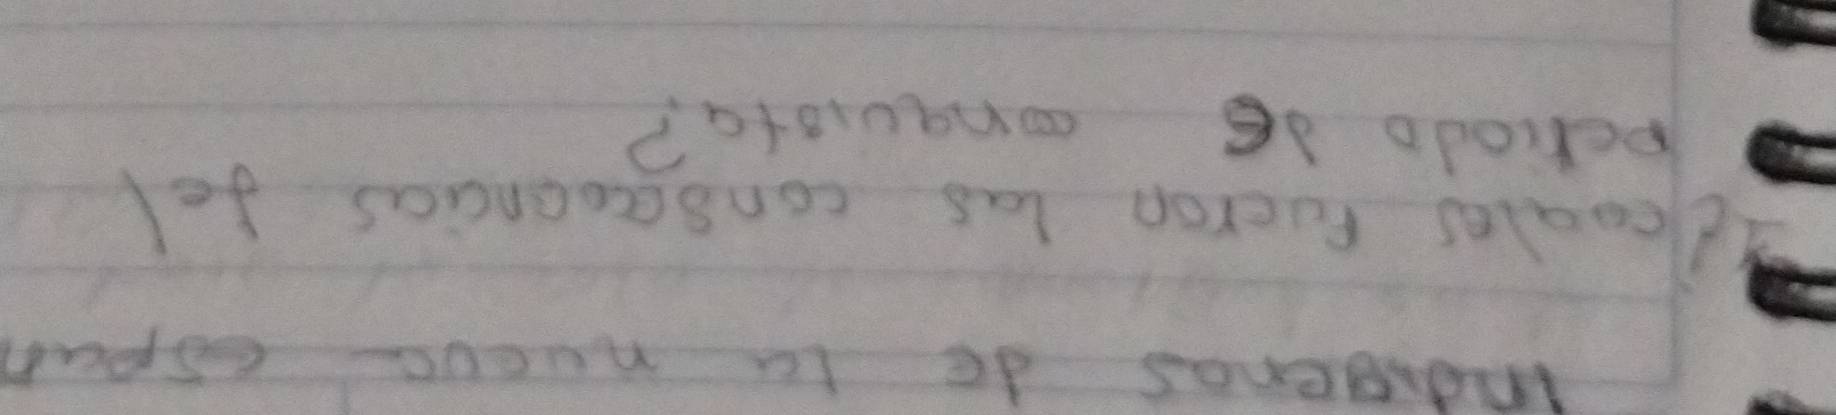 indigenas de la nueva españ
1¿cuales fueron las consecuencias del
periodo de conquista?